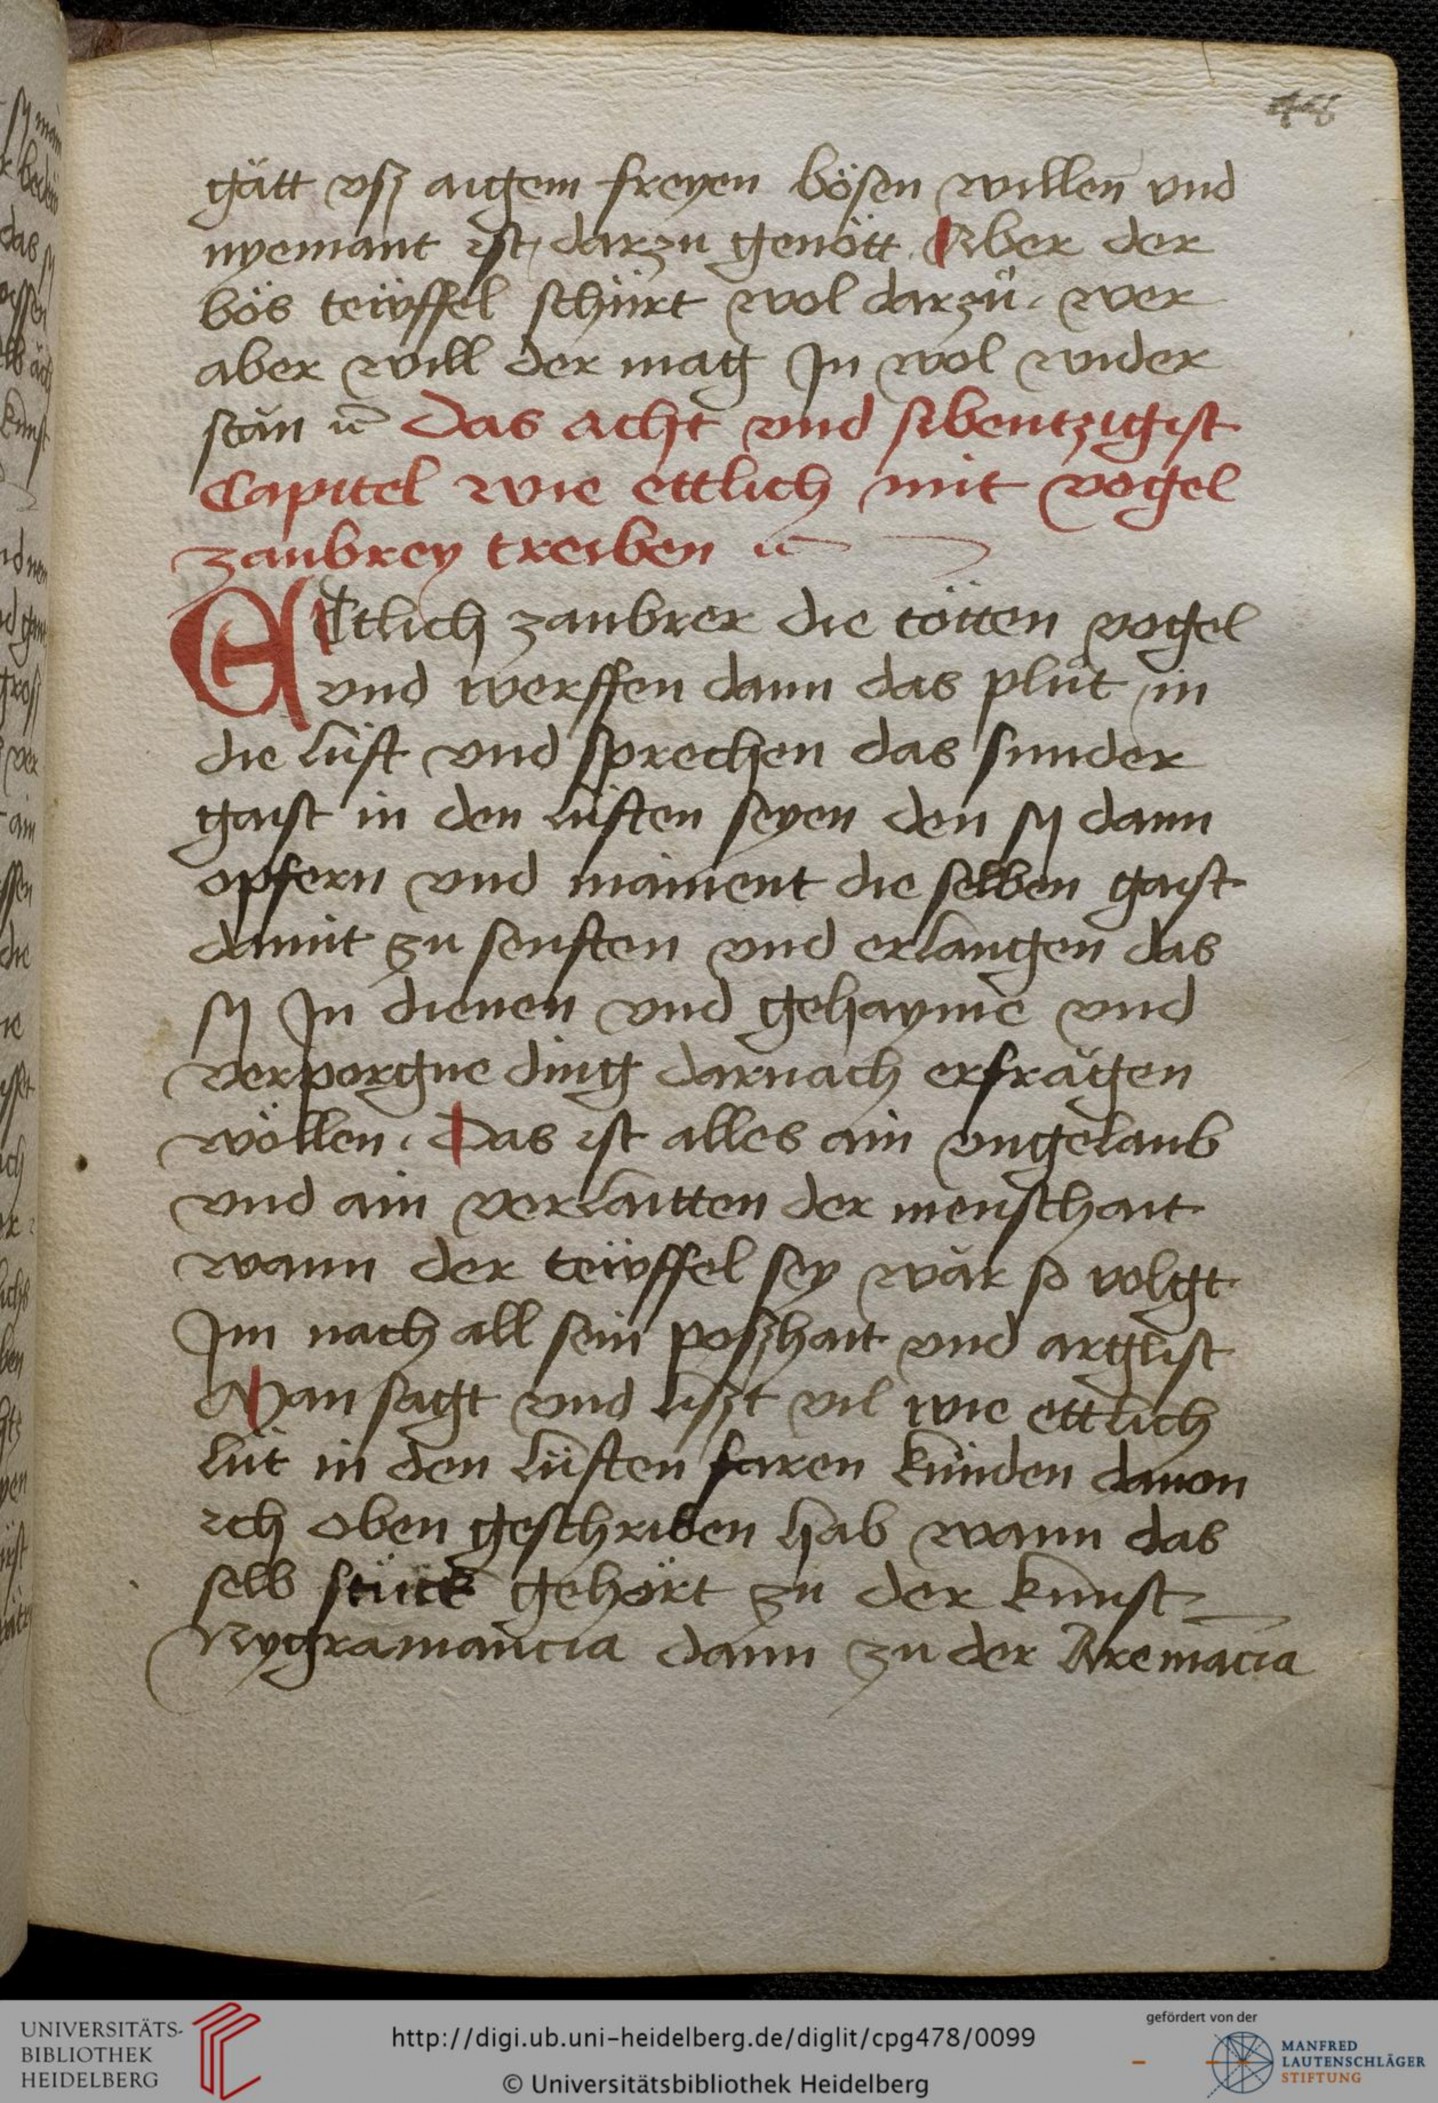 gätt vsz aigem freyen bösen willen vnd
nyemant ist darzu genött. Aber der
bös teẅffel schürt wol darzů. wer
aber will der mag Jn wol wider
stän ꝛc Das acht vnd sibentzigist
Capitel wie ettlich mit vogel
zaubrey treiben ꝛc
EEtlich zaubrer die tötten vogel
vnd werffen dann das plůt in
die lüft vnd sprechen das sunder
gaist in den lüften seyen den sÿ dann
opfern vnd mainent die selben gaist
damit zu senften vnd erlangen das
sÿ Jn dienen vnd gehayme vnd
verporgne ding darnach erfrägen
wöllen. Das ist alles ain vngelaub
vnd ain verlaitten der menschait
wann der teẅffel sey wär so volgt
Jm nach all sein poszhait vnd arglist
Man sagt vnd liszt vil wie ettlich
lüt in den lüften faren künden dauon
ich oben geschriben hab wann das
selb stück gehört zu der kunst
Nygramancia dann zu der Aremacia
UNIVERSITÄTS-
BIBLIOTHEK
HEIDELBERG
http://digi.ub.uni-heidelberg.de/diglit/cpg478/0099
© Universitätsbibliothek Heidelberg
gefördert von der
MANFRED
LAUTENSCHLÄGER
STIFTUNG